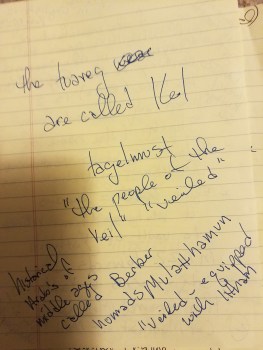 the tuareg
are called Kel
tagelmust
"the people of the
veil" "veiled"
historical
Arabs of
middle ages
called Berber
nomads Mulatthamun
"veiled - equipped
with litham